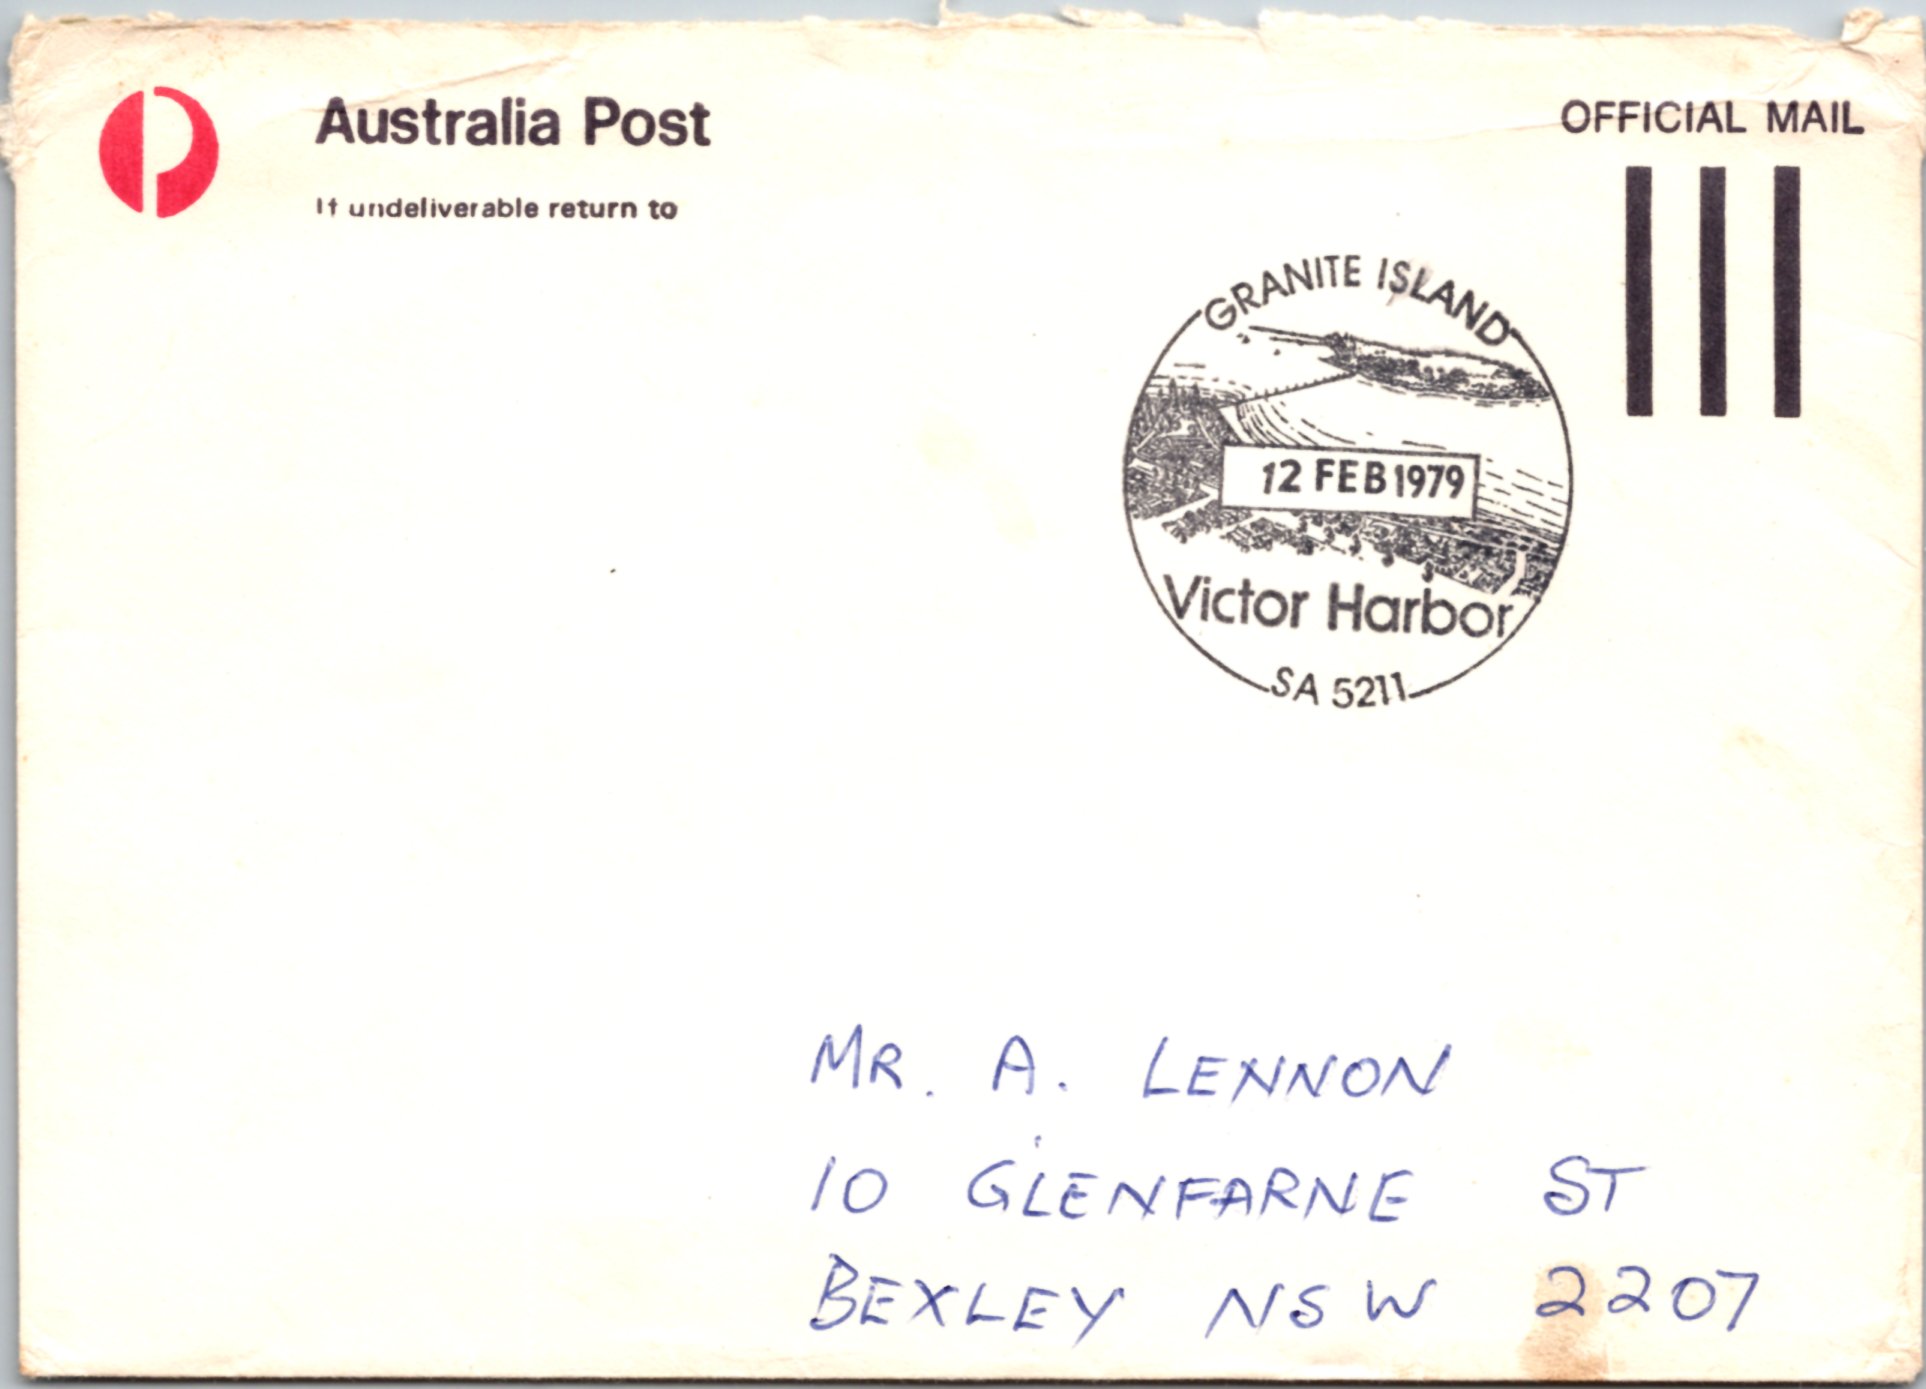 Australia Post
If undeliverable return to
OFFICIAL MAIL
GRANITE ISLAND
12 FEB 1979
Victor Harbor
SA 5211
MR. A. LENNON
10 GLENFARNE ST
BEXLEY NSW 2207